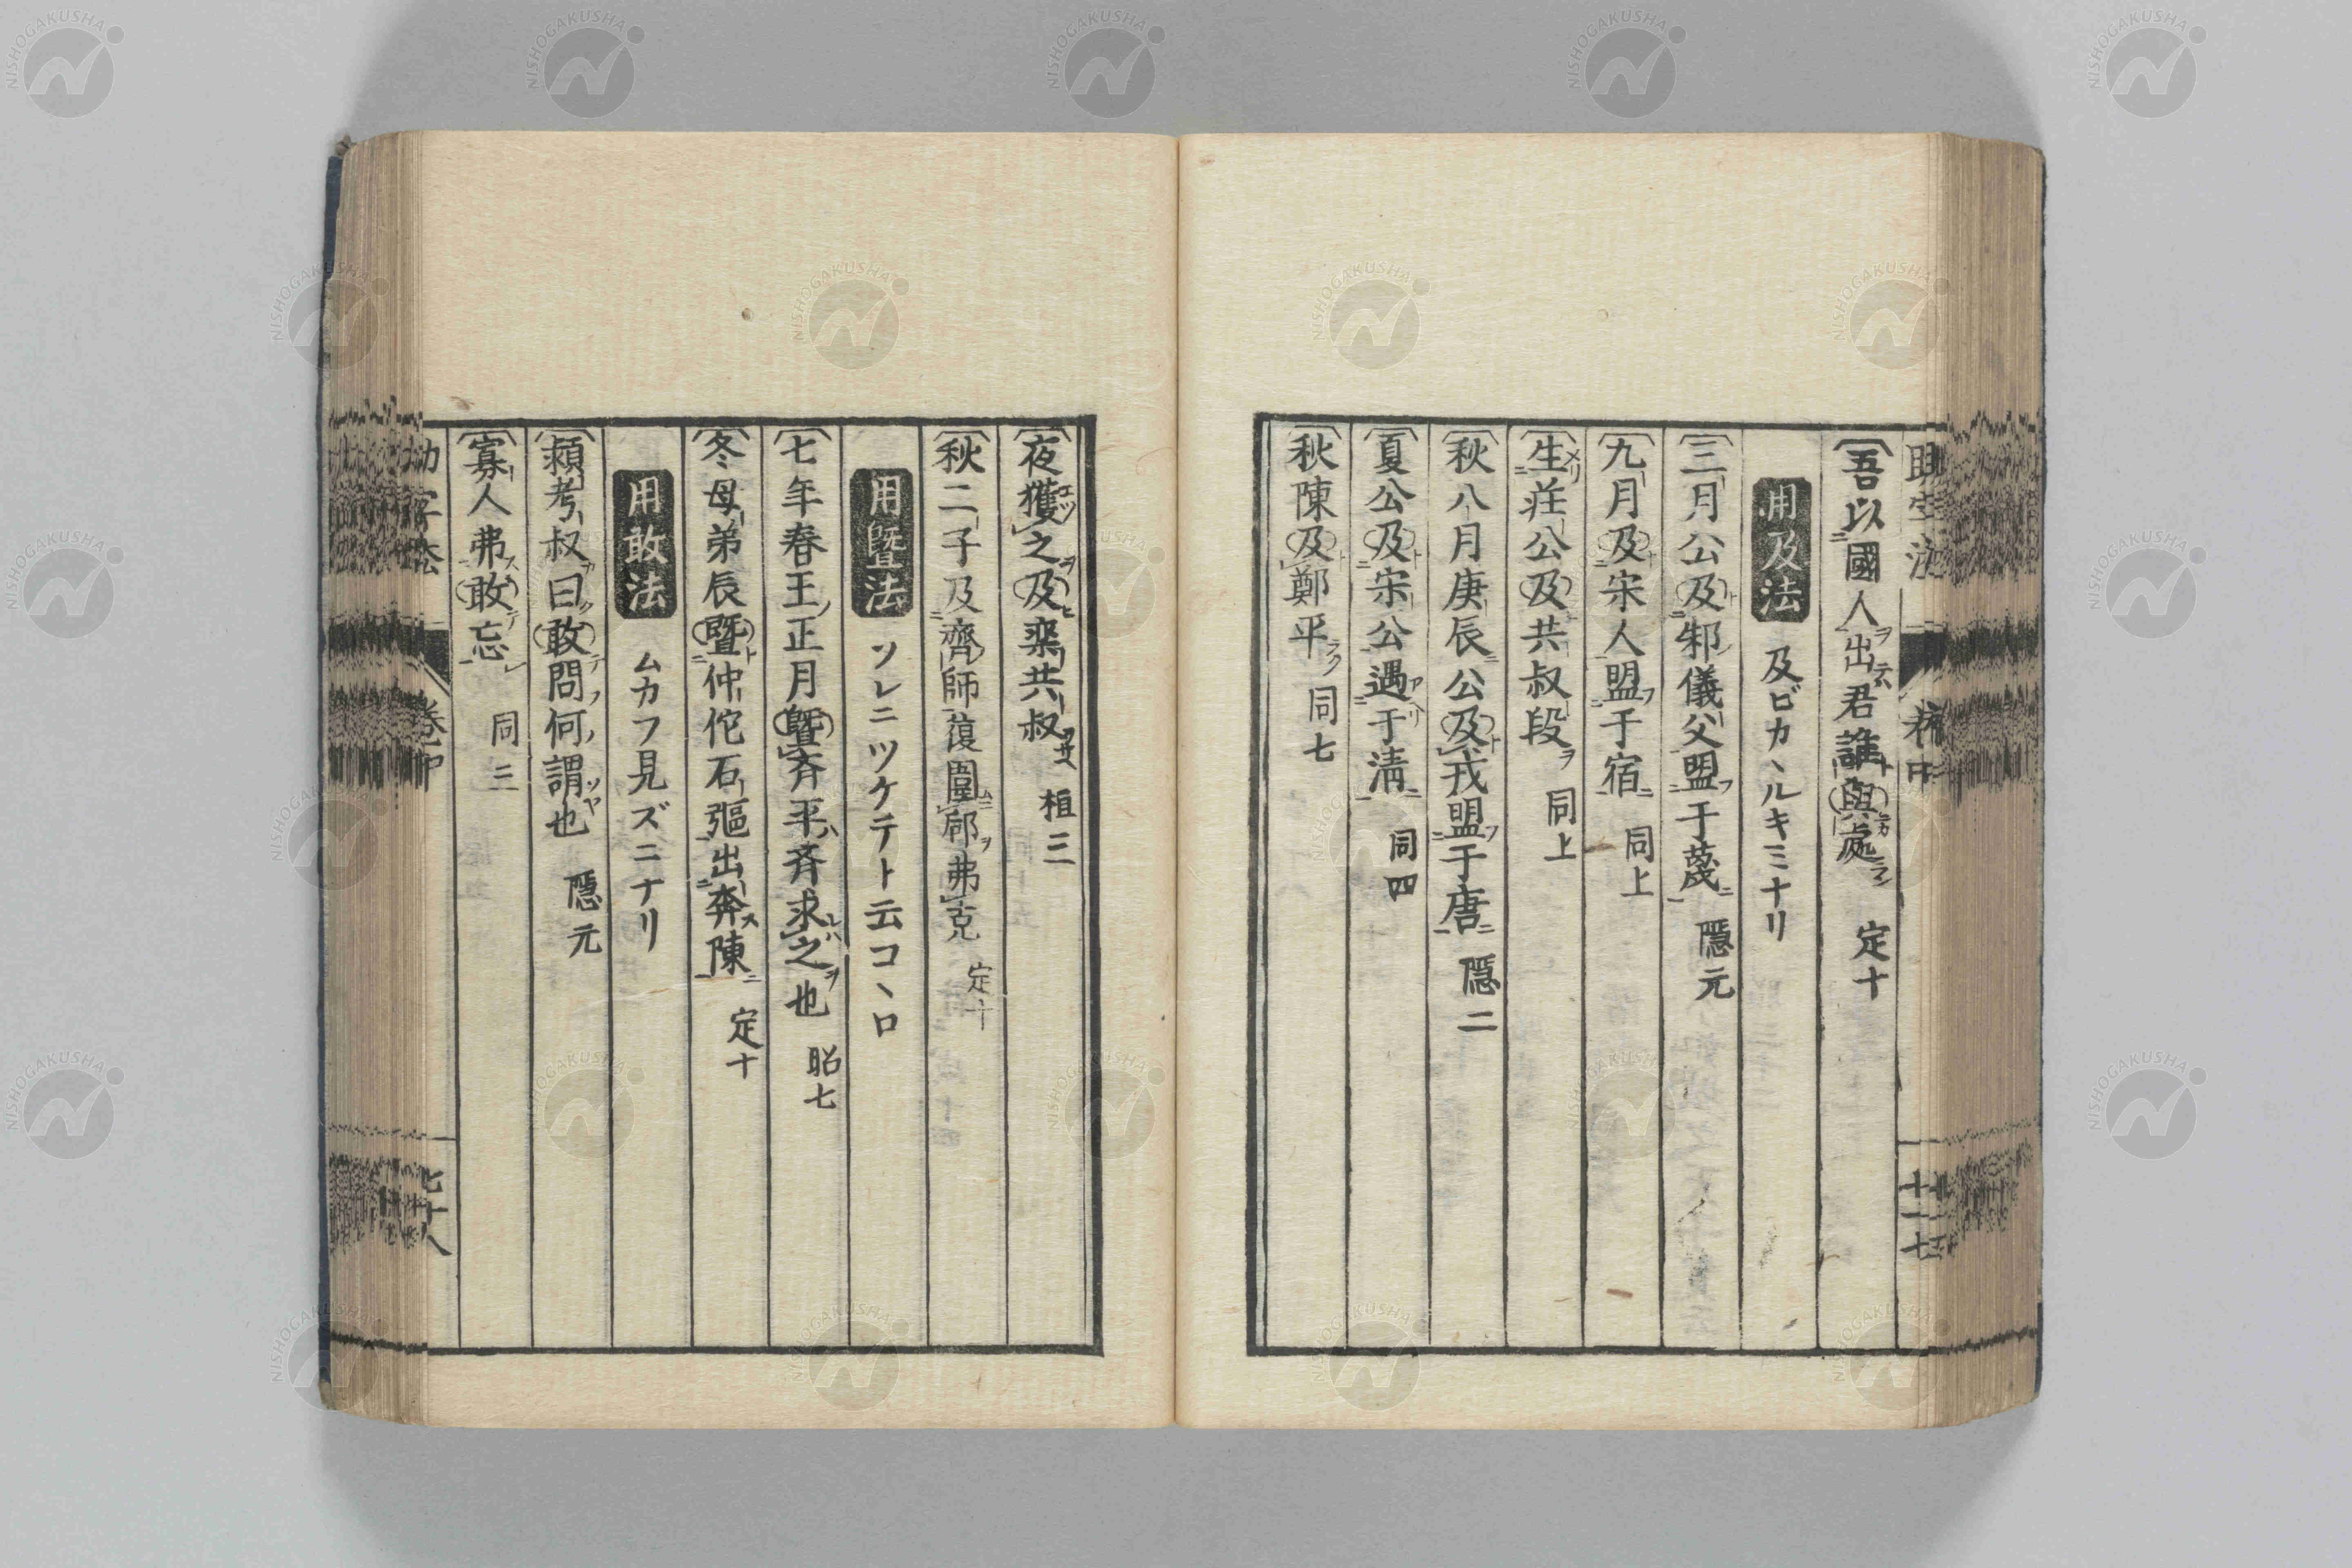 吾以國人出君誰與處 定十
用及法 及ビカヽルキミナリ
三月公及邾儀父盟于蔑 隱元
九月及宋人盟于宿 同上
生莊公及共叔段 同上
秋八月庚辰公及戎盟于唐 隱二
夏公及宋公遇于清 同四
秋陳及鄭平 同七
夜獲之及欒共叔 桓三
秋二子及齊師復圍郈弗克 定十
用曁法 ソレニツケテト云コヽロ
七年春王正月曁齊平齊求之也 昭七
冬母弟辰曁仲佗石彄出奔陳 定十
用敢法 ムカフ見ズニナリ
潁考叔曰敢問何謂也 隱元
寡人弗敢忘 同三
七十八
NISHOGAKUSHA